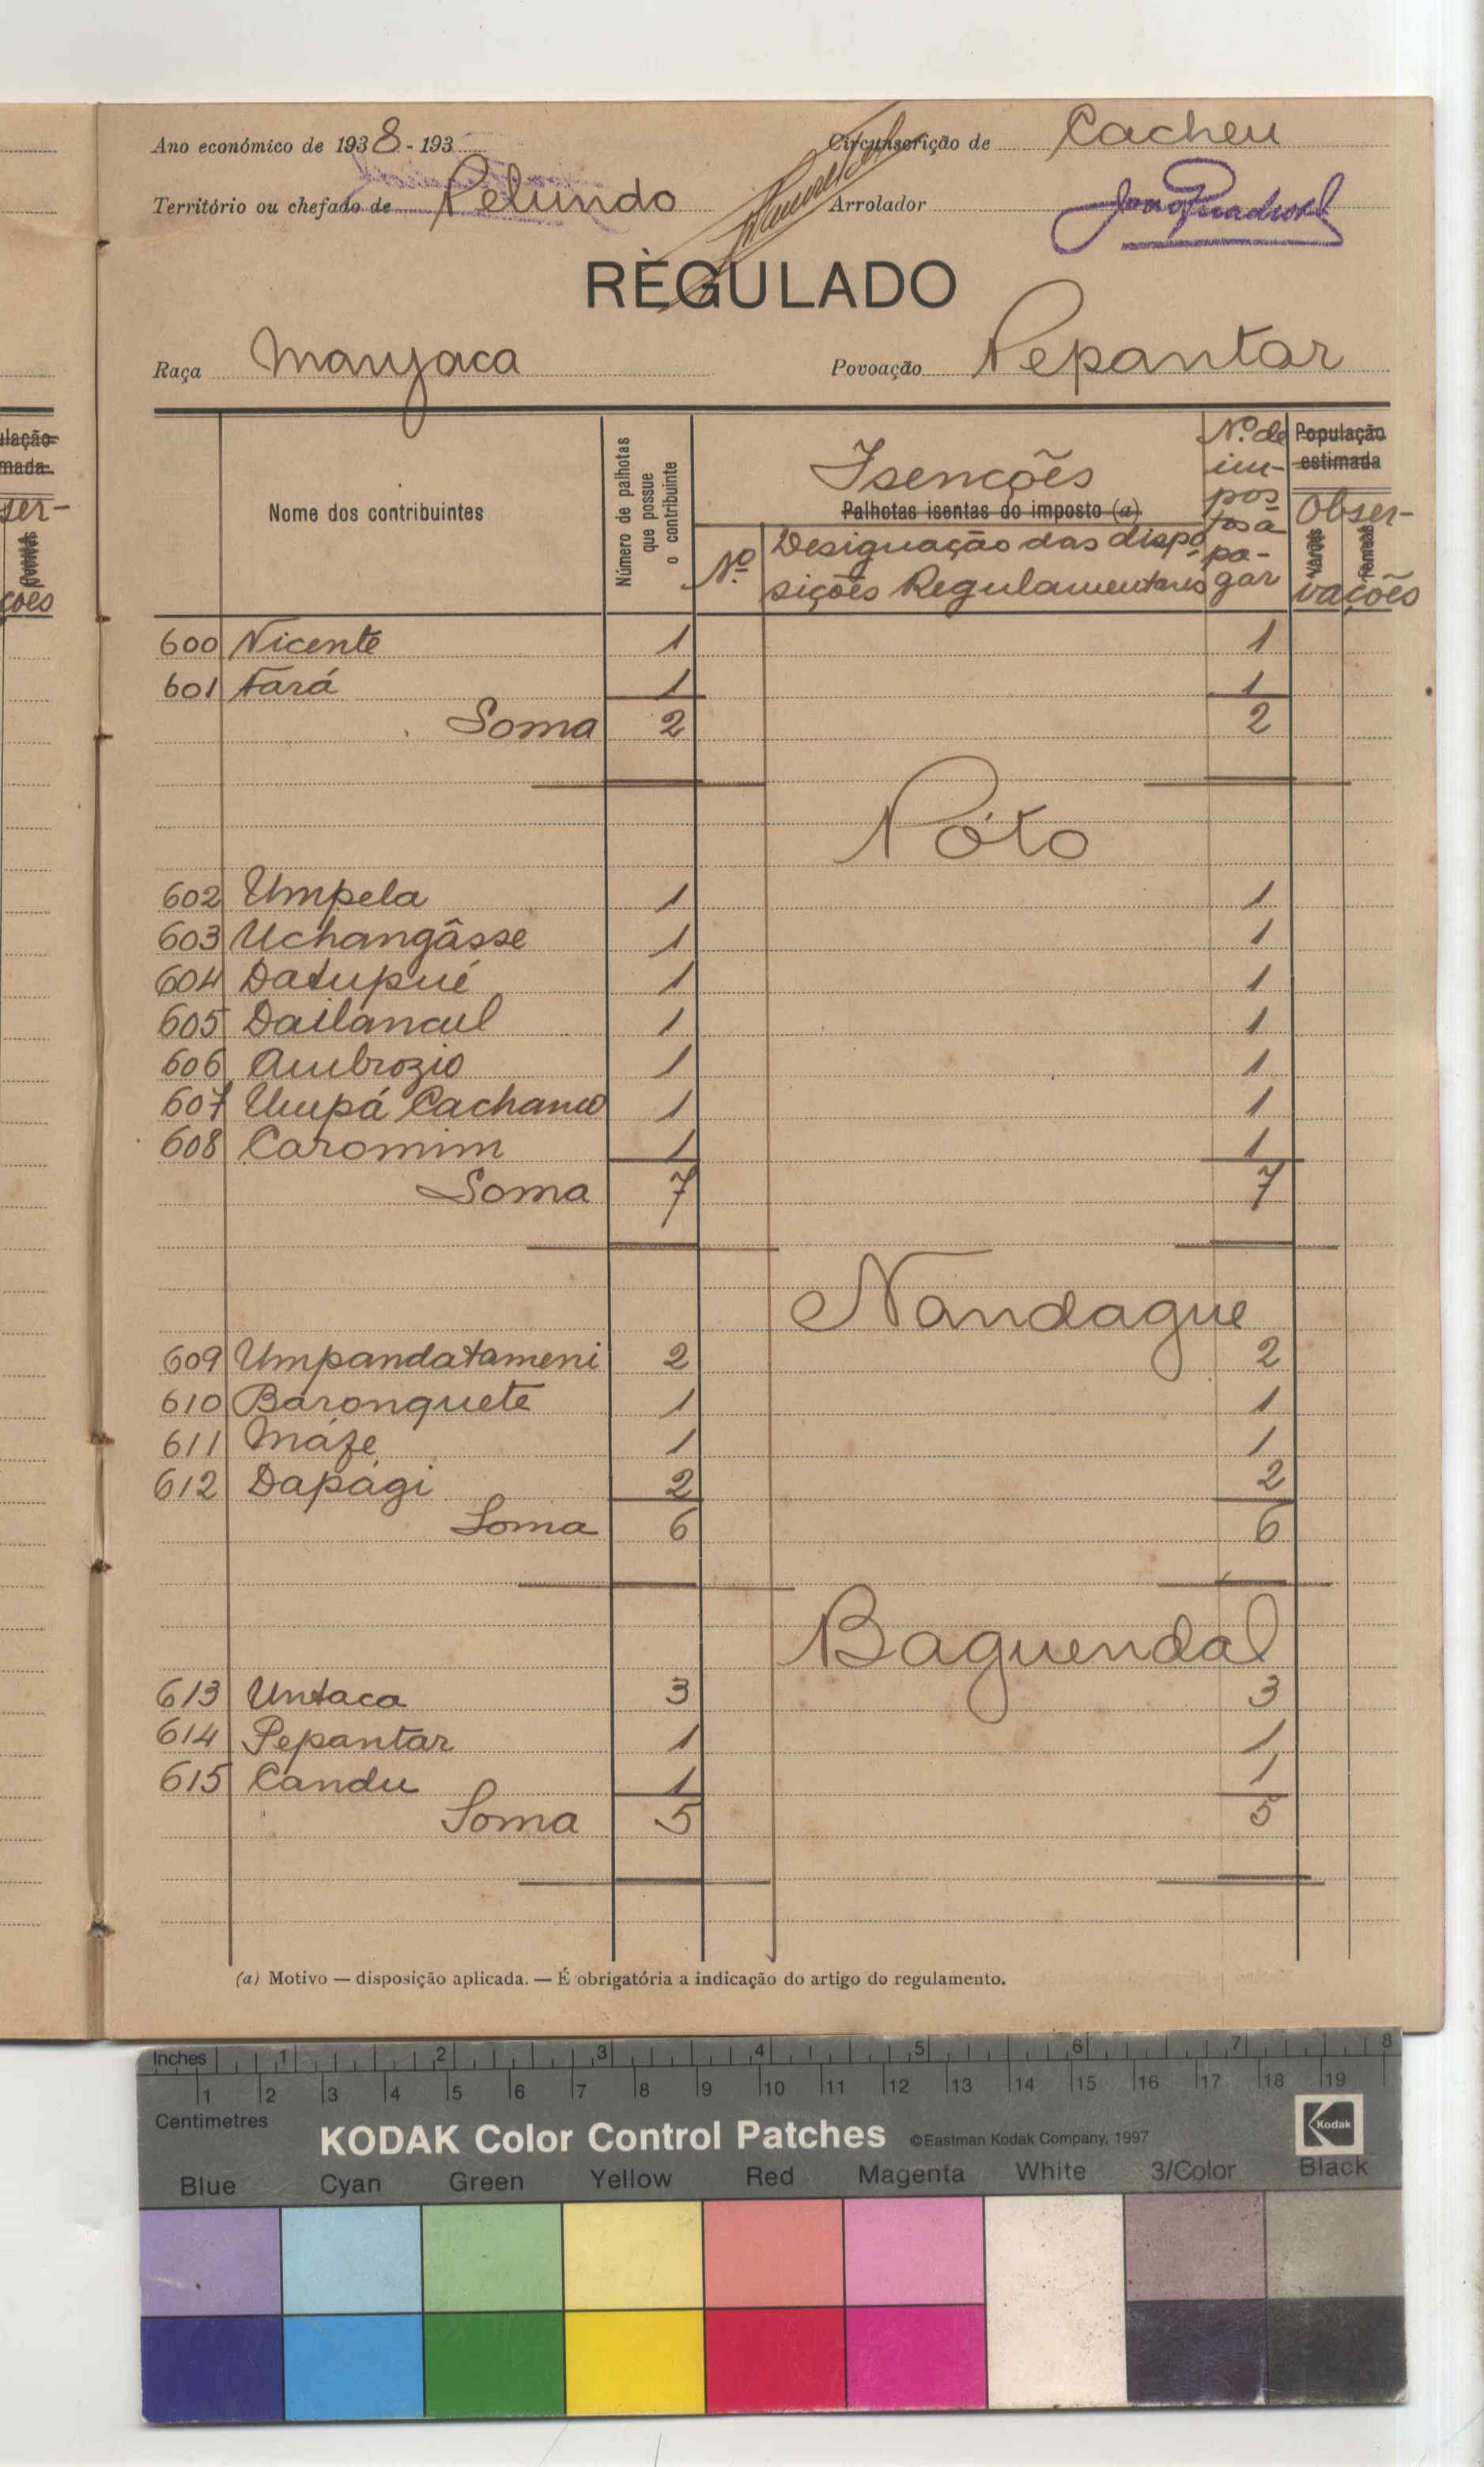 Ano económico de 1938-193
Circunscrição de Cacheu
Território ou chefado de Pelundo
Arrolador
REGULADO
Raça Manjaca
Povoação Pepantar
Nome dos contribuintes
Número de palhotas que possue o contribuinte
Isenções
Palhotas isentas do imposto (a)
Nº
Designação das dispo-
sições Regulamentares
N.º de
im-
pos
tos a
pa-
gar
População
estimada
Obser-
Varões
Femeas
vações
lação
mada
ser-
ções
600 Vicente 1 1
601 Fará 1 1
Soma 2 2
Póto
602 Umpela 1 1
603 Uchangâsse 1 1
604 Datupué 1 1
605 Dailancul 1 1
606 Ambrozio 1 1
607 Umpá Cachanco 1 1
608 Caromim 1 1
Soma 7 7
Nandague
609 Umpandatameni 2 2
610 Baronquete 1 1
611 Máfe 1 1
612 Dapági 2 2
Soma 6 6
Baguendal
613 Untaca 3 3
614 Pepantar 1 1
615 Candu 1 1
Soma 5 5
(a) Motivo — disposição aplicada. — É obrigatória a indicação do artigo do regulamento.
Inches 1 2 3 4 5 6 7 8
1 2 3 4 5 6 7 8 9 10 11 12 13 14 15 16 17 18 19
Centimetres
KODAK Color Control Patches ©Eastman Kodak Company, 1997
Kodak
Blue Cyan Green Yellow Red Magenta White 3/Color Black